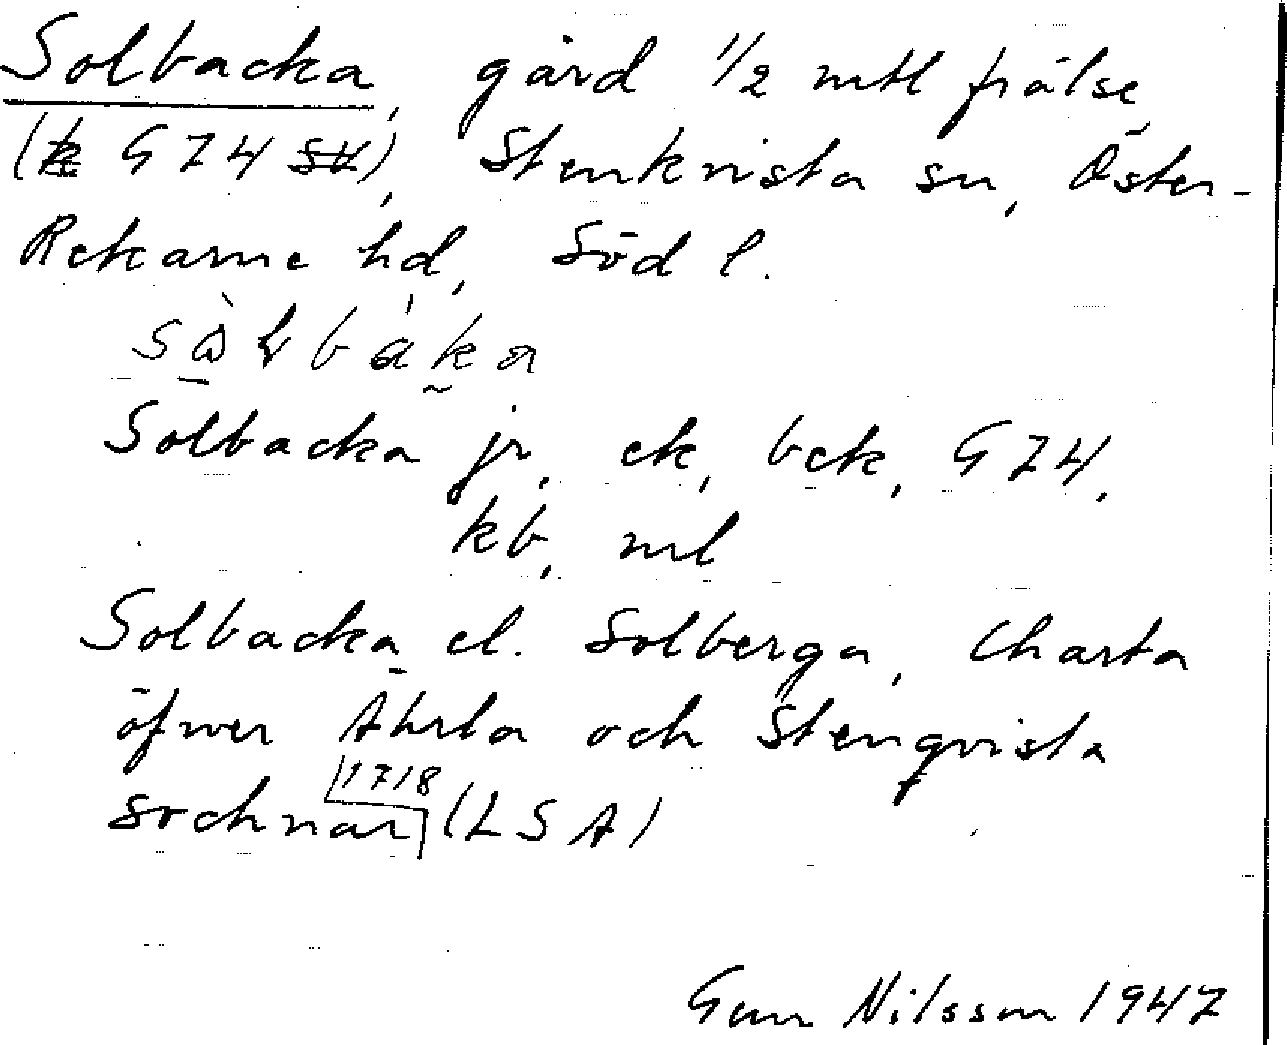 Solbacka, gård 1/2 mtl frälse
(k G74 SV), Stenkvista sn, Öster-
Rekarne hd, Söd l.
Solbacka jr, ek, bek, G74,
kb, ml
Solbacka el. Solberga, Charta
öfwer Åhrla och Stenqvista
sochnar 1718 (LSA)
Gun Nilsson 1947